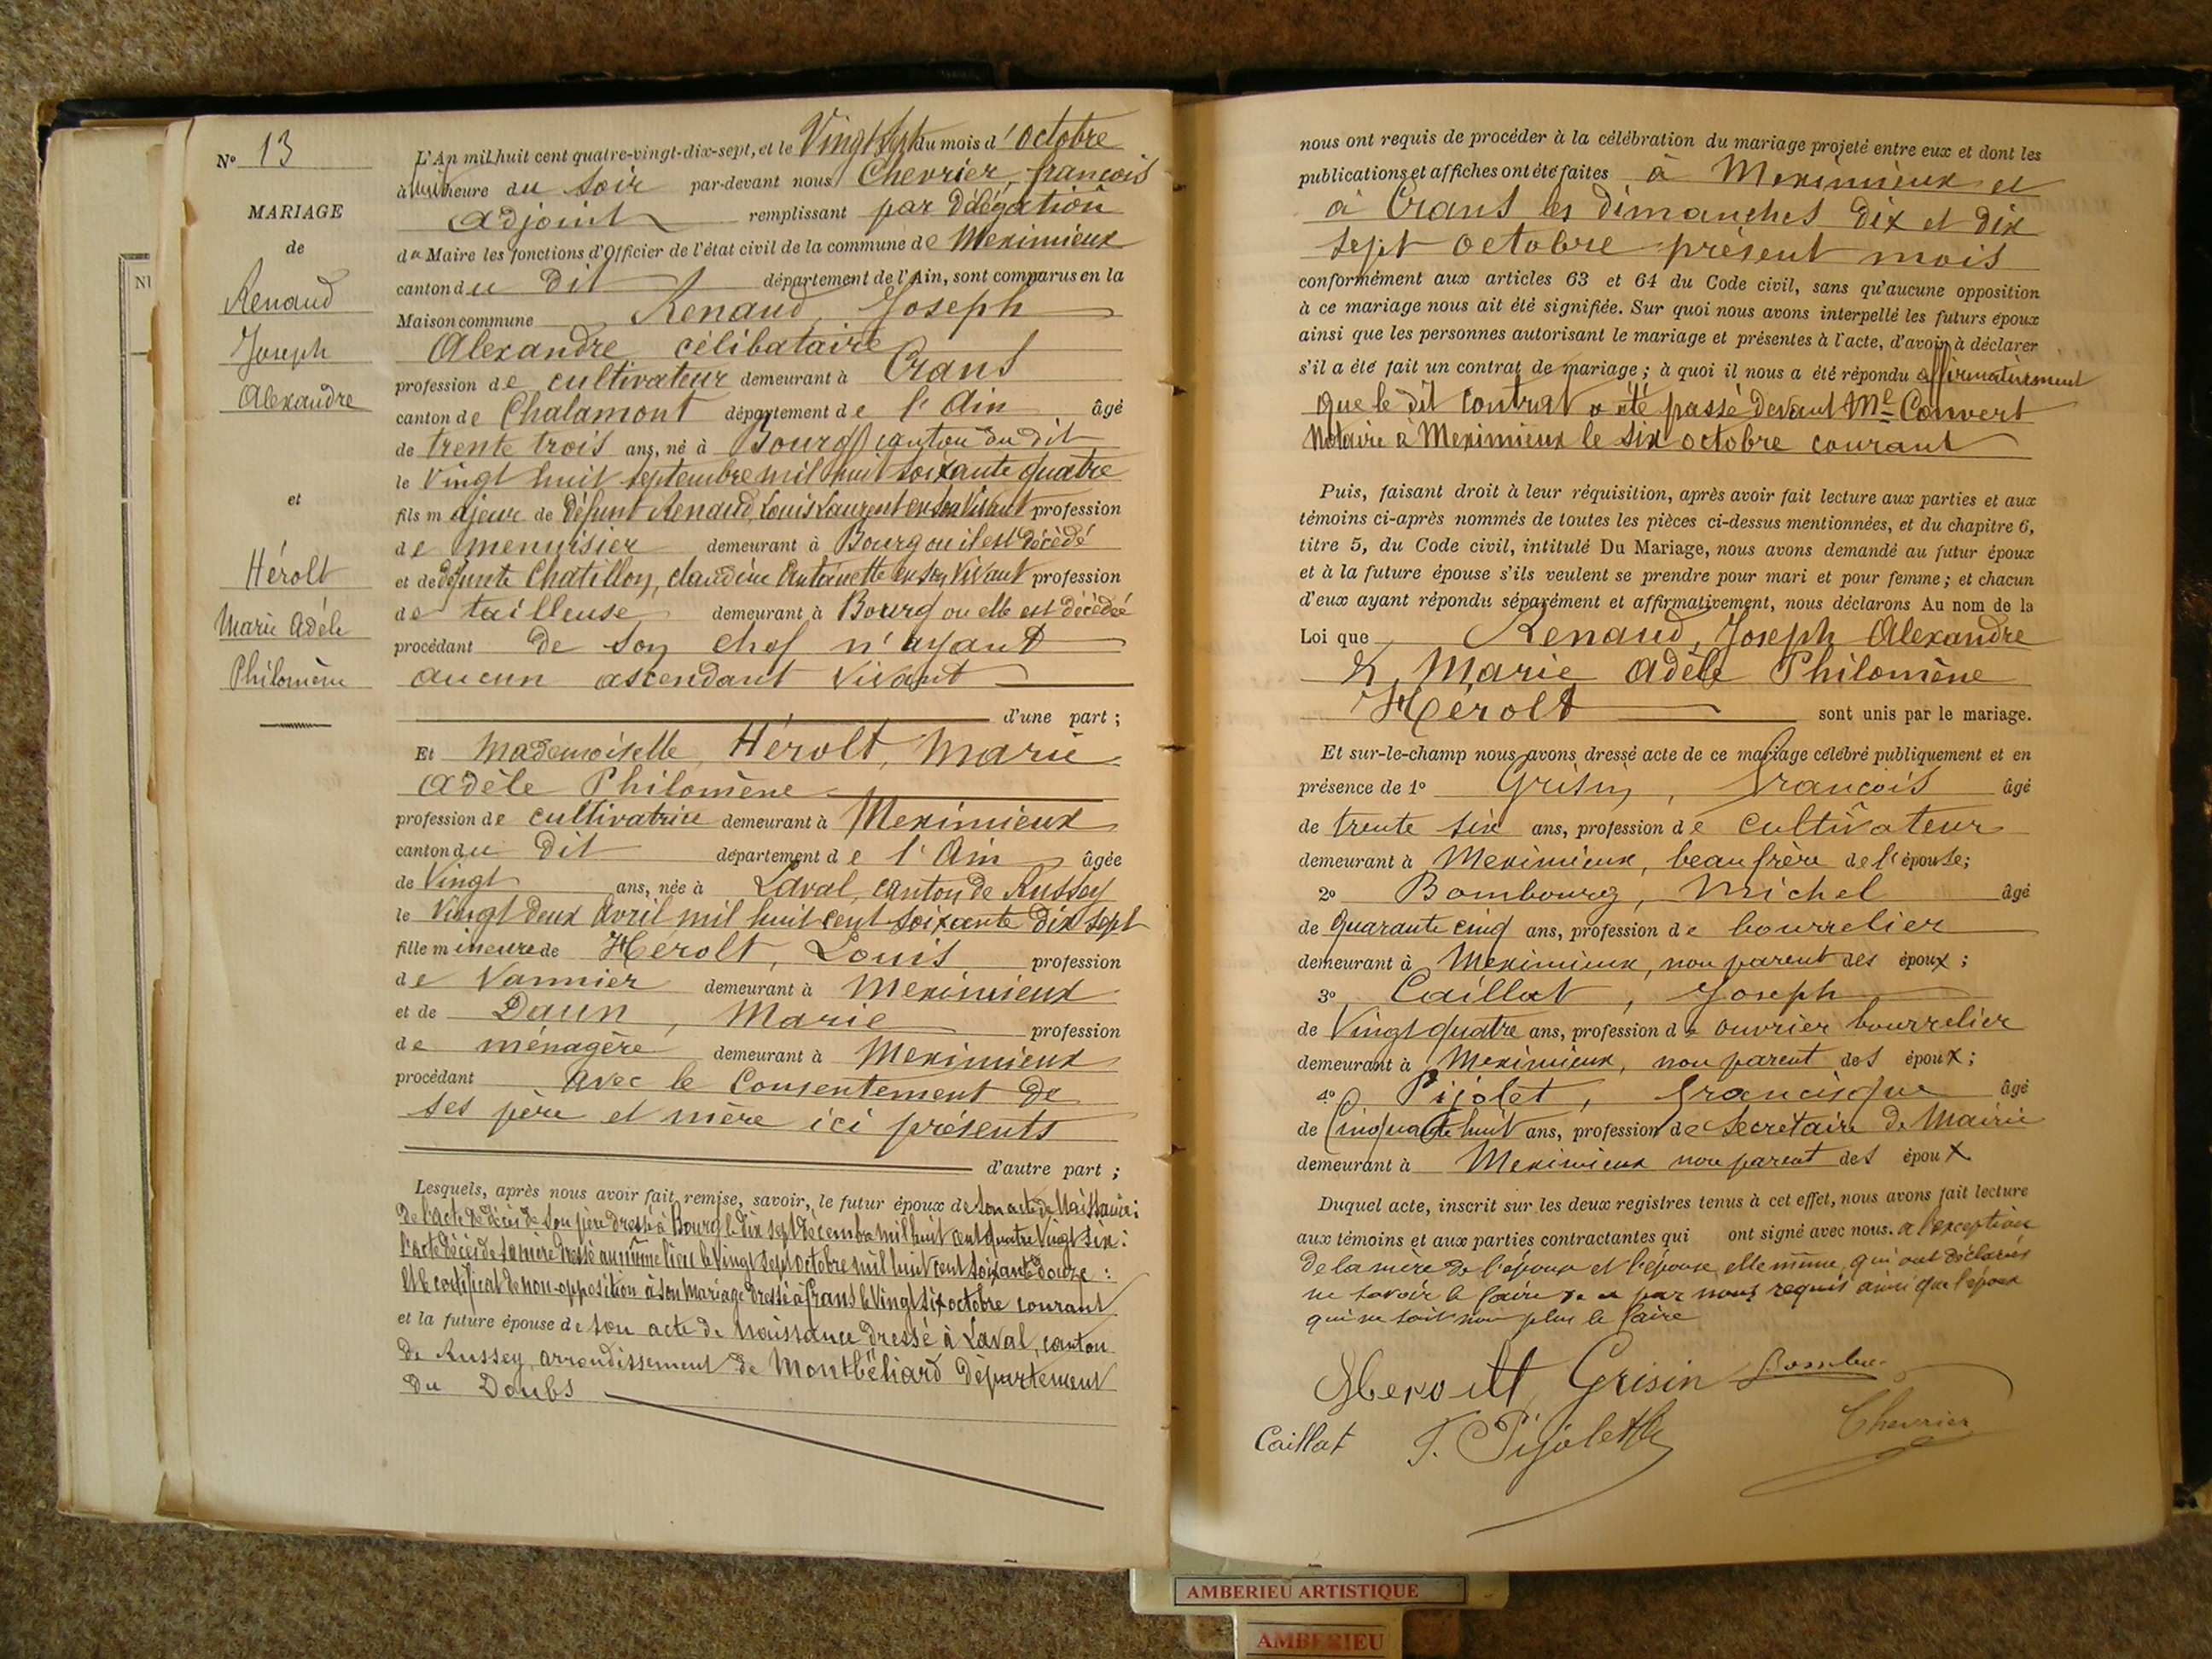 N° 13
MARIAGE
de
Renaud
Joseph
Alexandre
et
Hérolt
Marie Adèle
Philomène
L'An mil huit cent quatre-vingt-dix-sept, et le Vingt sept du mois d'octobre
à huit heure du soir par-devant nous Chevrier, françois
adjoint remplissant par délégation
du Maire les fonctions d'Officier de l'état civil de la commune de Meximieux
canton du dit département de l'Ain, sont comparus en la
Maison commune Renaud, Joseph
Alexandre célibataire
profession de cultivateur demeurant à Crans
canton de Chalamont département de l'Ain âgé
de trente trois ans, né à Bourg canton du dit
le Vingt huit septembre mil huit soixante quatre
fils majeur de défunt Renaud, Louis Laurent en son vivant profession
de menuisier demeurant à Bourg ou il est décédé
et de défunte Chatillon, claudine Antoinette en son vivant profession
de tailleuse demeurant à Bourg ou elle est décédée
procédant de son chef n'ayant
aucun ascendant vivant
d'une part ;
Et Mademoiselle, Hérolt, Marie
Adèle Philomène
profession de cultivatrice demeurant à Meximieux
canton du dit département de l'Ain âgée
de Vingt ans, née à Laval, canton de Russey
le Vingt deux Avril mil huit cent soixante dix sept
fille mineure de Herolt, Louis profession
de Vannier demeurant à Meximieux
et de Daun, Marie profession
de ménagère demeurant à Meximieux
procédant avec le consentement de
ses père et mère ici présents
d'autre part ;
Lesquels, après nous avoir fait remise, savoir, le futur époux de son acte de Naissance ;
De l'acte de décès de son père dressé à Bourg le dix sept décembre mil huit cent quatre vingt six :
l'acte décès de sa mère dressé au même lieu le vingt sept octobre mil huit cent soixante douze :
et le certificat de non-opposition à son mariage dressé à Crans le vingt six octobre courant
et la future épouse de son acte de Naissance dressé à Laval, canton
de Russey, arrondissement de Montbéliard département
du Doubs
nous ont requis de procéder à la célébration du mariage projeté entre eux et dont les
publications et affiches ont été faites à Meximieux et
à Crans les dimanches dix et dix
sept octobre présent mois
conformément aux articles 63 et 64 du Code civil, sans qu'aucune opposition
à ce mariage nous ait été signifiée. Sur quoi nous avons interpellé les futurs époux
ainsi que les personnes autorisant le mariage et présentes à l'acte, d'avoir à déclarer
s'il a été fait un contrat de mariage ; à quoi il nous a été répondu affirmativement
que le dit contrat a été passé devant Me Convert
Notaire à Meximieux le six octobre courant
Puis, faisant droit à leur réquisition, après avoir fait lecture aux parties et aux
témoins ci-après nommés de toutes les pièces ci-dessus mentionnées, et du chapitre 6,
titre 5, du Code civil, intitulé Du Mariage, nous avons demandé au futur époux
et à la future épouse s'ils veulent se prendre pour mari et pour femme ; et chacun
d'eux ayant répondu séparément et affirmativement, nous déclarons Au nom de la
Loi que Renaud, Joseph Alexandre
& Marie Adèle Philomène
Hérolt sont unis par le mariage.
Et sur-le-champ nous avons dressé acte de ce mariage célébré publiquement et en
présence de 1° Grisin, François âgé
de trente six ans, profession de cultivateur
demeurant à Meximieux, beau frère de l'épouse ;
2° Bombourg, Michel âgé
de Quarante cinq ans, profession de bourrelier
demeurant à Meximieux, non parent des époux ;
3° Caillat, Joseph
de Vingt quatre ans, profession de ouvrier bourrelier
demeurant à Meximieux, non parent des époux ;
4° Pijolet, Francisque âgé
de Cinquante huit ans, profession de secrétaire de Mairie
demeurant à Meximieux non parent des époux
Duquel acte, inscrit sur les deux registres tenus à cet effet, nous avons fait lecture
aux témoins et aux parties contractantes qui ont signé avec nous. a l'exception
De la mère de l'épouse et l'épouse elle même, qui ont déclarés
ne savoir le faire de ce par nous requis ainsi que l'époux
qui ne sait non plus le faire
Grisin
Caillat F. Pijolet Chevrier
AMBERIEU ARTISTIQUE
AMBERIEU